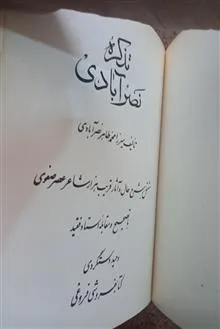 تذکره
نصرآبادی
تألیف میرزا محمد طاهر نصرآبادی
مشتمل بر شرح حال و آثار قریب هزار شاعر عصر صفوی
با تصحیح و مقابله استاد فقید
وحید دستگردی
کتابفروشی فروغی